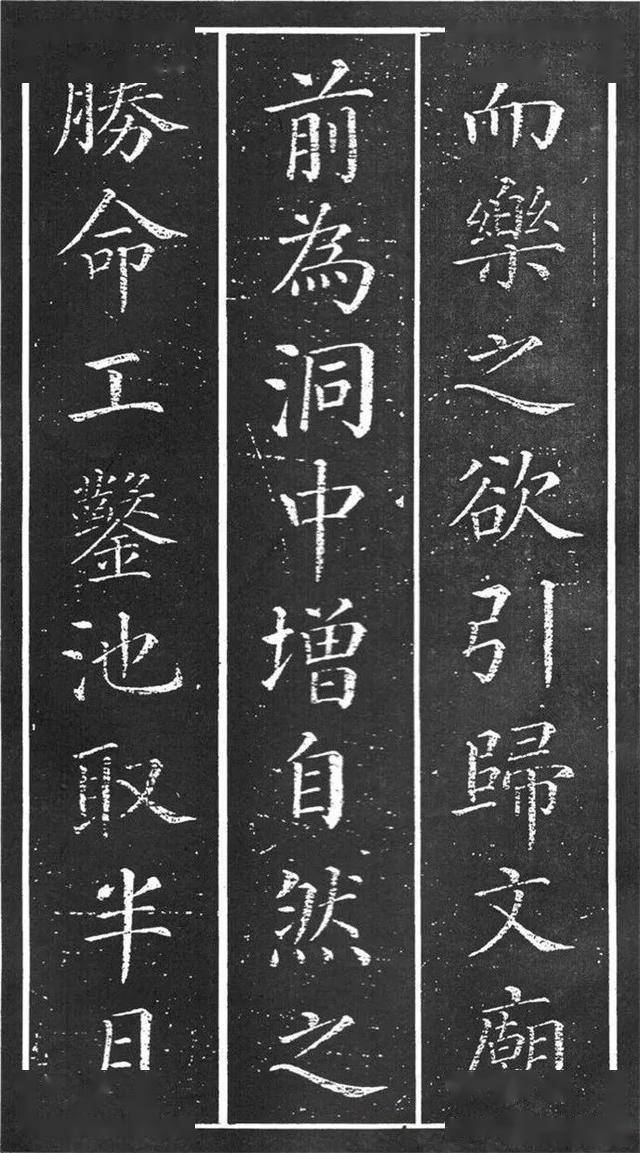 而樂之欲引歸文廟
前為洞中增自然之
勝命工鑿池取半月